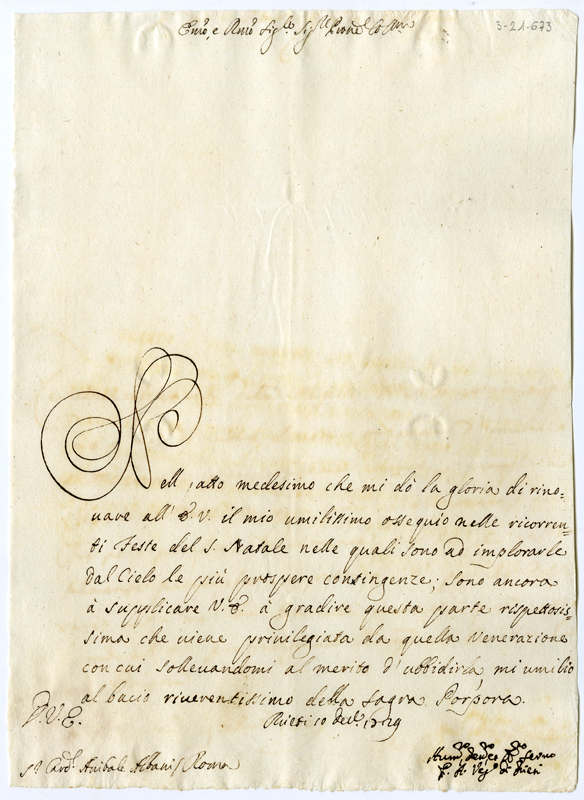 3-21-673
Emo, e Rmo Sigre Sigr Prone Colmo
Nell'atto medesimo che mi dò la gloria di rino=
uare all'E. V. il mio umilissimo ossequio nelle ricorren=
ti Feste del S. Natale nelle quali sono ad implorarle
dal Cielo le più prospere contingenze; sono ancora
à supplicare V. E. à gradire questa parte rispettosis=
sima che uiene priuilegiata da quella Venerazione
con cui solleuandomi al merito d'ubbidirla mi umilio
al bacio riuerentissimo della Sagra Porpora.
D. V. E. Rieti 10 Decre 1729
Sr Cardl Anibale Albani / Roma
Humo Deuo Seruo
Veso di Rieti